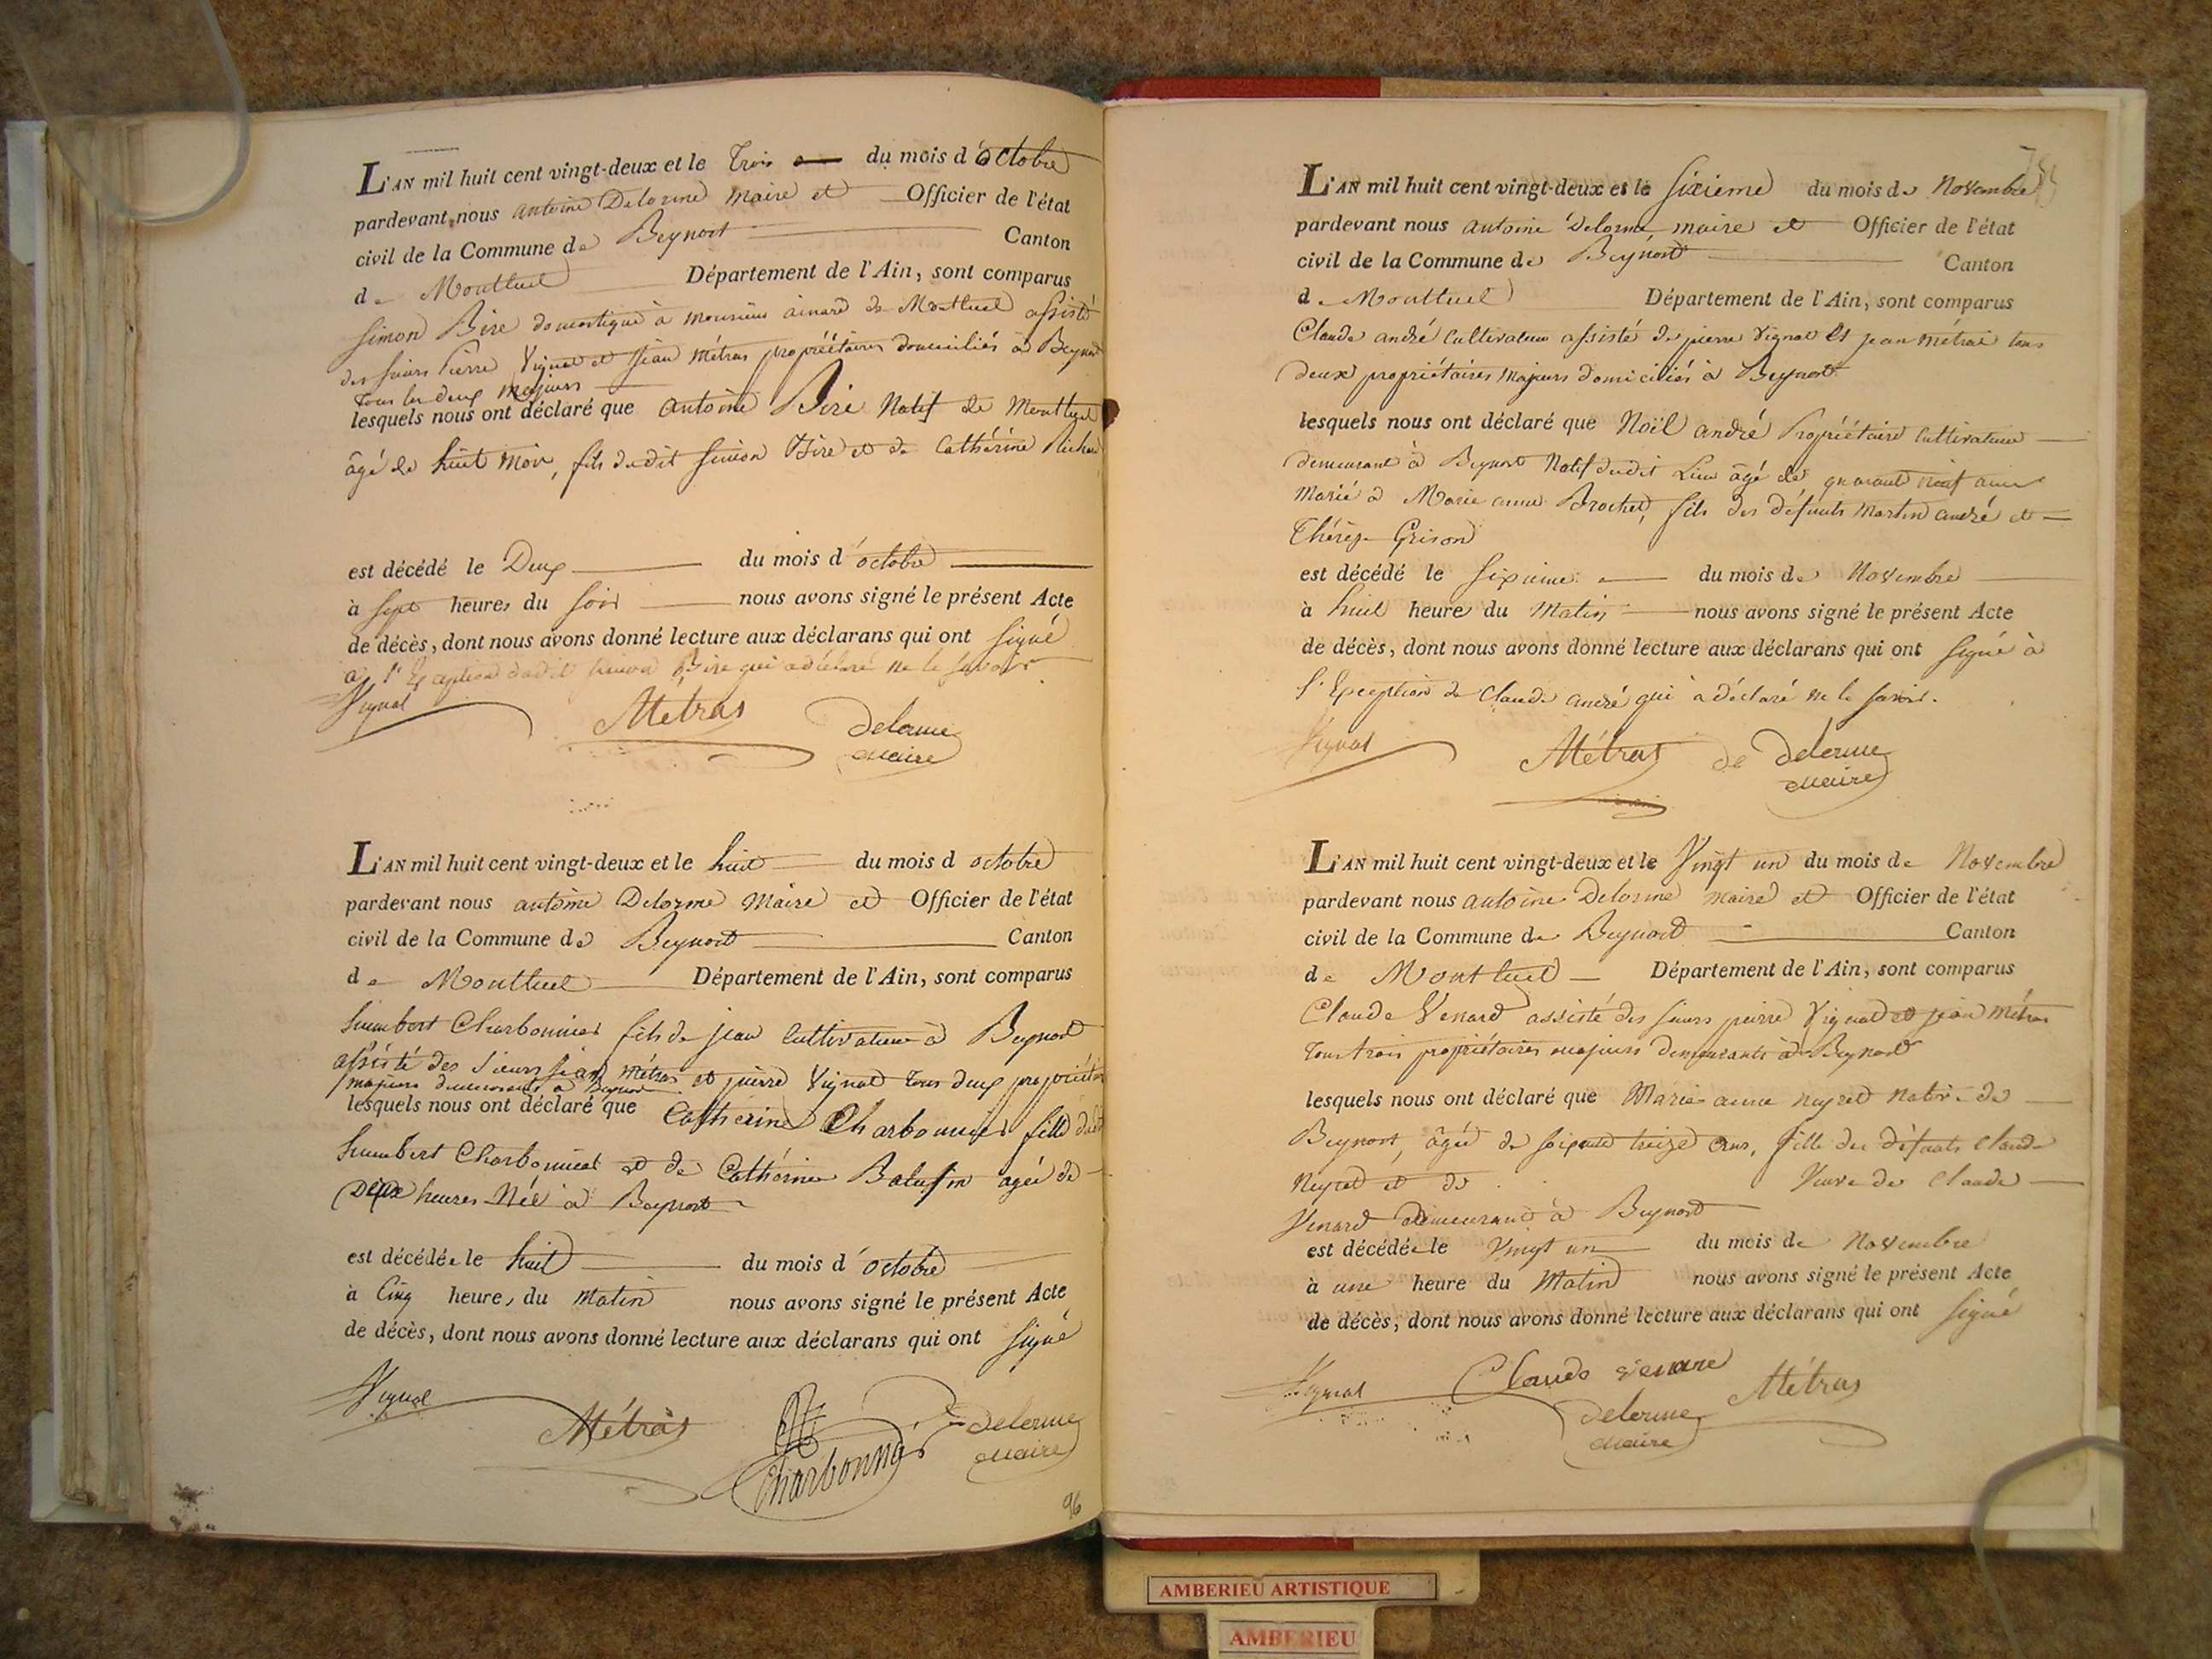 L'AN mil huit cent vingt-deux et le Trois du mois d'octobre
pardevant nous antoine Delorme maire et Officier de l'état
civil de la Commune de Beynost Canton
de Montluel Département de l'Ain, sont comparus
Simon Bire domestique à monsieur ainard de Montluel assisté
des sieurs Pierre Vignat et jean métras propriétaires domiciliés à Beynost
tous les deux majeurs
lesquels nous ont déclaré que antoine Bire Natif de Montluel
âgé de huit mois, fils dudit simon Bire et de Cathérine Richard
est décédé le Deux du mois d'octobre
à sept heures du soir nous avons signé le présent Acte
de décès, dont nous avons donné lecture aux déclarans qui ont signé
à l'Exception dudit simon Bire qui a déclaré ne le savoir
Vignat Métras Delorme
maire
L'AN mil huit cent vingt-deux et le huit du mois d octobre
pardevant nous antoine Delorme Maire et Officier de l'état
civil de la Commune de Beynost Canton
de Montluel Département de l'Ain, sont comparus
humbert Charbonnier fils de jean Cultivateur à Beynost
assisté des sieurs jean métras et pierre Vignat tous deux propriétaires
majeurs demeurants à Beynost
lesquels nous ont déclaré que Cathérine Charbonnier fille dudit
humbert Charbonnier et de Cathérine agée de
Deux heures Née à Beynost
est décédée le huit du mois d'octobre
à Cinq heures du Matin nous avons signé le présent Acte
de décès, dont nous avons donné lecture aux déclarans qui ont signé
Vignat Métras Charbonnié Delorme
maire
96
L'AN mil huit cent vingt-deux et le sixieme du mois de Novembre
pardevant nous antoine Delorme maire et Officier de l'état
civil de la Commune de Beynost Canton
de Montluel Département de l'Ain, sont comparus
Claude andré Cultivateur assisté de pierre Vignat et jean métras tous
deux propriétaires majeurs domiciliés à Beynost
lesquels nous ont déclaré que Noël andré Propriétaire Cultivateur
demeurant à Beynost Natif dudit Lieu âgé de quarante neuf ans
marié à Marie anne Brochet, fils des défunts Martin andré et
Thérèse Grison
est décédé le sixieme du mois de Novembre
à huit heures du Matin nous avons signé le présent Acte
de décès, dont nous avons donné lecture aux déclarans qui ont signé à
l'Exception de Claude andré qui a déclaré ne le savoir.
Vignat Métras de Delorme
maire
L'AN mil huit cent vingt-deux et le Vingt un du mois de Novembre
pardevant nous antoine Delorme maire et Officier de l'état
civil de la Commune de Beynost Canton
de Montluel Département de l'Ain, sont comparus
Claude Venard assisté des sieurs pierre Vignat et jean métras
Tous trois propriétaires majeurs demeurants à Beynost
lesquels nous ont déclaré que Marie anne neyret native de
Beynost, âgée de soixante treize ans, fille des défunts Claude
Neyret et de Veuve de Claude
Venard demeurant à Beynost
est décédée le Vingt un du mois de Novembre
à une heure du Matin nous avons signé le présent Acte
de décès, dont nous avons donné lecture aux déclarans qui ont signé
Vignat Claude venare Métras
Delorme
maire
AMBERIEU ARTISTIQUE
AMBERIEU